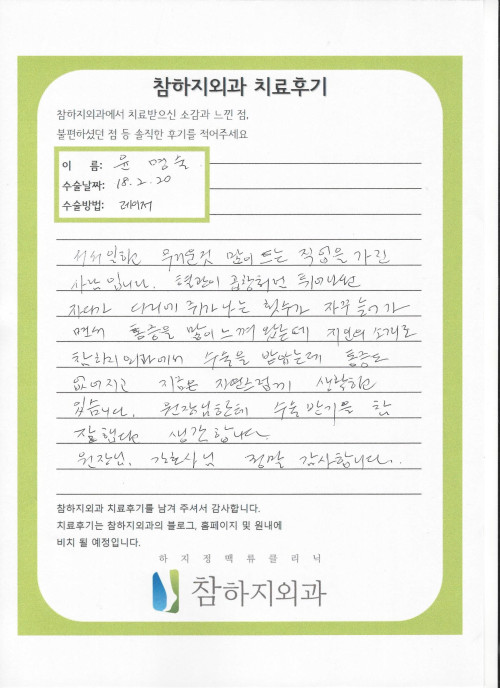 참하지외과 치료후기
참하지외과에서 치료받으신 소감과 느낀 점,
불편하셨던 점 등 솔직한 후기를 적어주세요
이 름: 윤 명 술
수술날짜: 18. 2. 20
수술방법: 레이저
서서 일하고 무거운것 많이 드는 직업을 가진
사람 입니다. 혈관이 튀어나면서
자다가 다리에 쥐가 나는 횟수가 자꾸 늘어가
면서 통증을 많이 느껴 왔는데 지인의 소개로
참하지외과에서 수술을 받았는데 통증도
없어지고 지금은 자연스럽게 생활하고
있습니다. 원장님한테 수술 받기를 참
잘했다 생각합니다.
원장님, 간호사님 정말 감사합니다..
참하지외과 치료후기를 남겨 주셔서 감사합니다.
치료후기는 참하지외과의 블로그, 홈페이지 및 원내에
비치 될 예정입니다.
하지정맥류클리닉
참하지외과